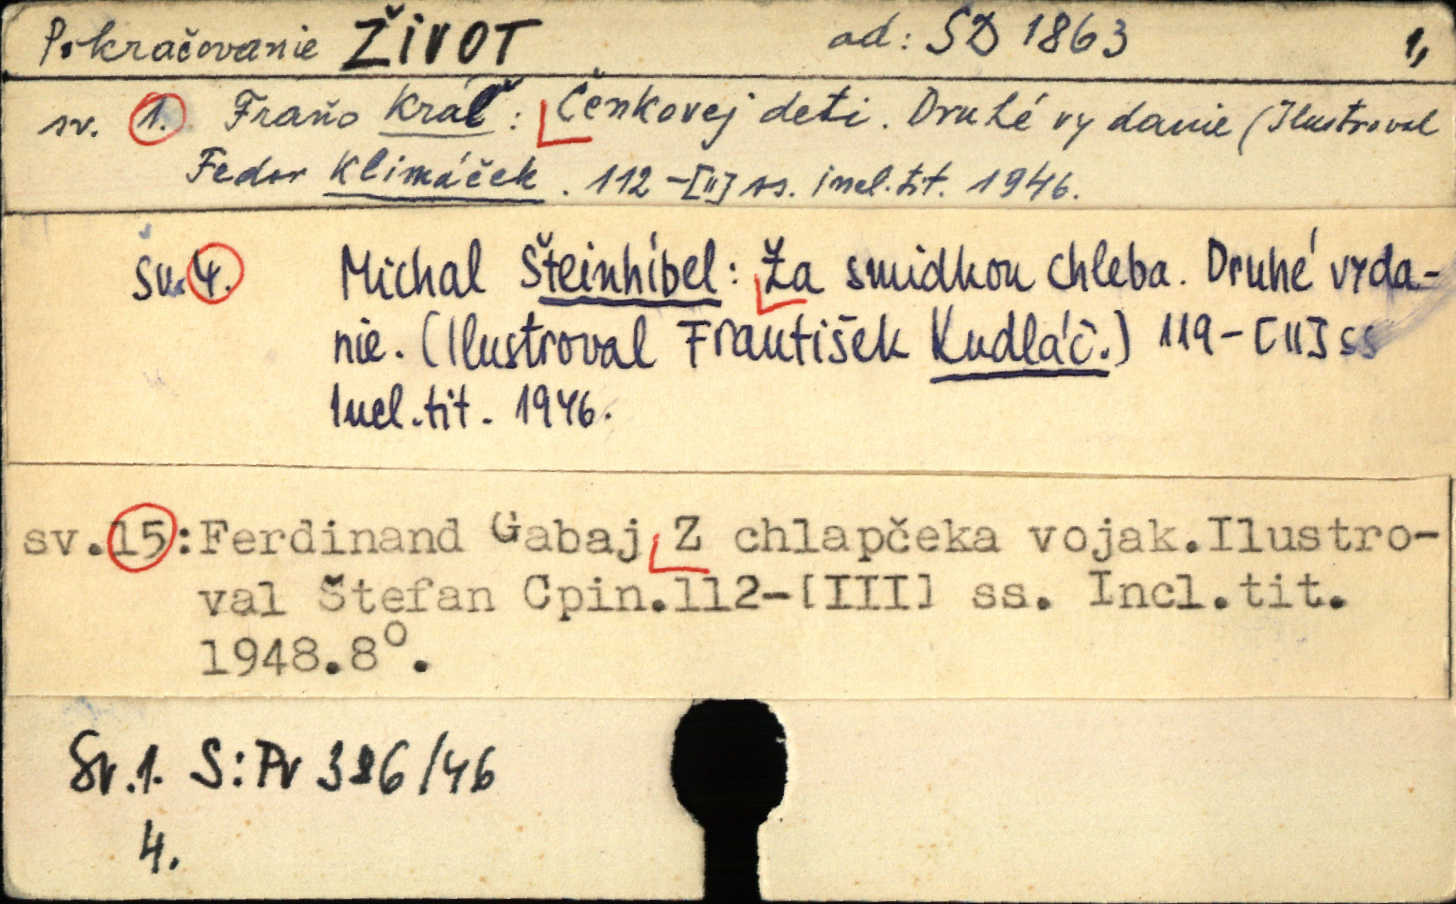 Pokračovanie ŽIVOT od: SD 1863 1,
sv. 1. Fraňo Kráľ: Čenkovej deti. Druhé vydanie (Ilustroval
Fedor Klimáček. 112-[II] ss. incl.tit. 1946.
Sv. 4. Michal Šteinhíbel: Za smidkou chleba. Druhé vyda-
nie. (Ilustroval František Kudláč.) 119-[II] ss
Incl.tit. 1946.
sv.15:Ferdinand Gabaj Z chlapčeka vojak.Ilustro-
val Štefan Cpin.112-[III] ss. Incl.tit.
1948.8°.
Sv.1. S:Pr /46
4.